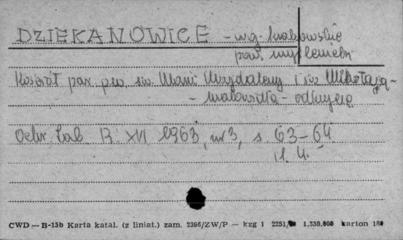 DZIEKANOWICE - w.g. krakowskie
pow. myślenicki
Kościół par. p.w. św. Marii Magdaleny i św. Mikołaja -
- malowidła - odkrycie
Ochr. Zab. R. XVI 1963, nr 3, s. 63-64
il. 4.
CWD—B-15b Karta katal. (z liniat.) zam. 2396/ZW/P — kzg 1 karton